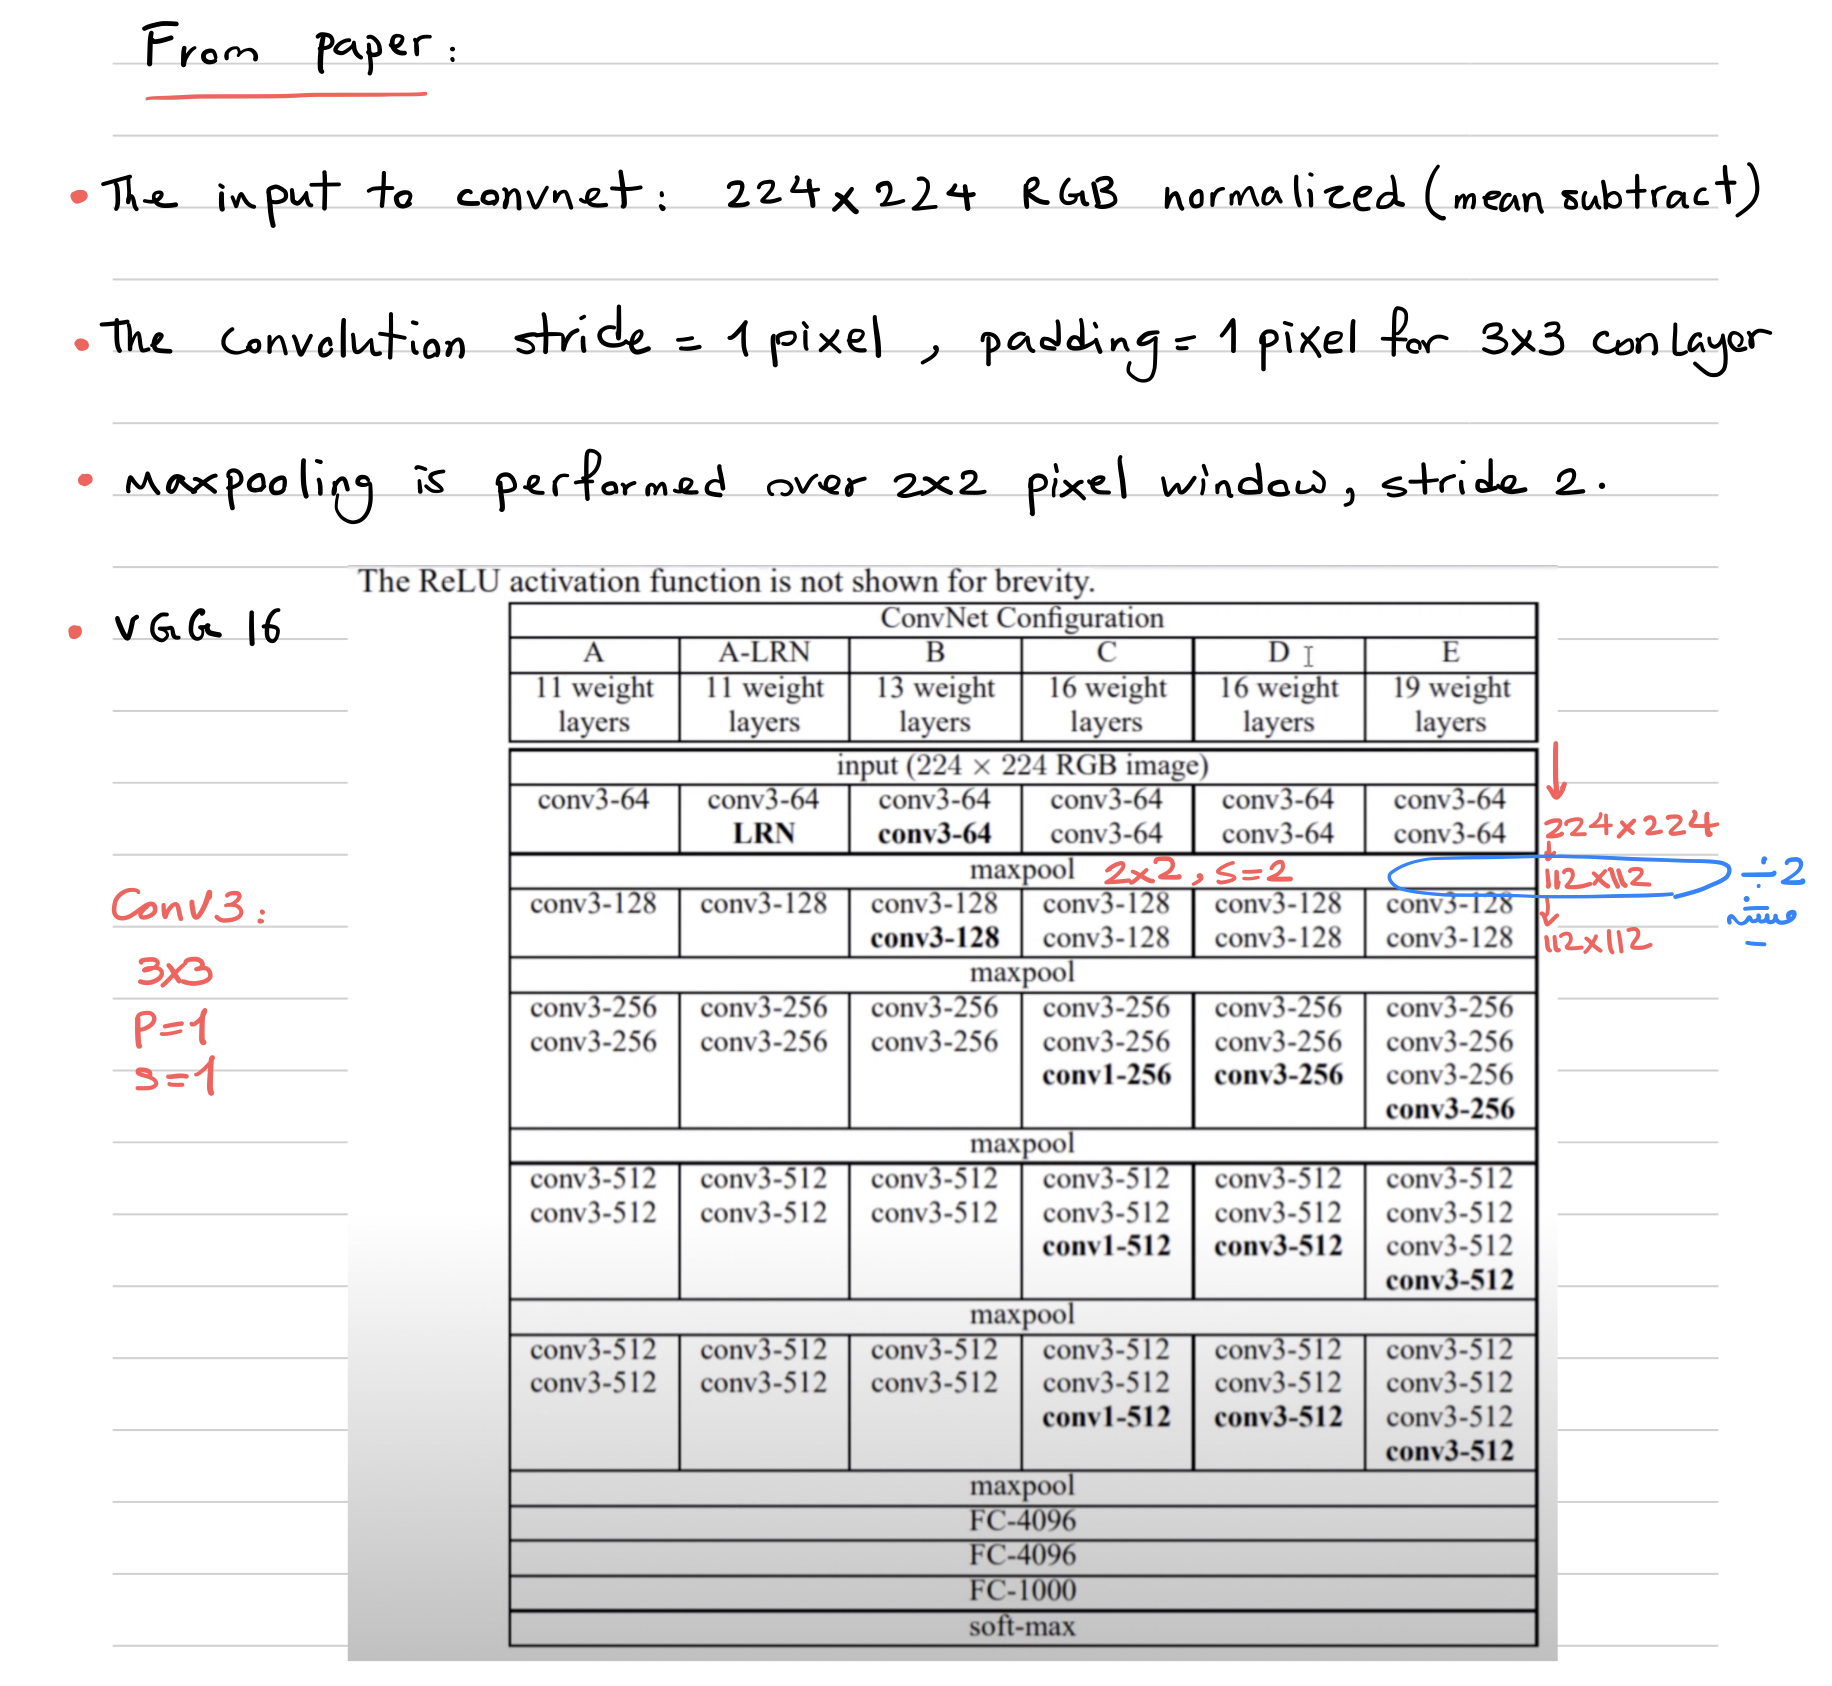 From paper:
• The input to convnet: 224x224 RGB normalized (mean subtract)
• The convolution stride = 1 pixel, padding = 1 pixel for 3x3 con Layer
• Maxpooling is performed over 2x2 pixel window, stride 2.
The ReLU activation function is not shown for brevity.
• VGG 16
ConvNet Configuration
A A-LRN B C D E
11 weight layers 11 weight layers 13 weight layers 16 weight layers 16 weight layers 19 weight layers
input (224 × 224 RGB image)
conv3-64 conv3-64 conv3-64 conv3-64 conv3-64 conv3-64
LRN conv3-64 conv3-64 conv3-64 conv3-64 224x224
maxpool 2x2, s=2 112x112 ÷2
conv3-128 conv3-128 conv3-128 conv3-128 conv3-128 conv3-128
conv3-128 conv3-128 conv3-128 conv3-128 112x112
maxpool
Conv3:
3x3
P=1
s=1
conv3-256 conv3-256 conv3-256 conv3-256 conv3-256 conv3-256
conv3-256 conv3-256 conv3-256 conv3-256 conv3-256 conv3-256
conv1-256 conv3-256 conv3-256
conv3-256
maxpool
conv3-512 conv3-512 conv3-512 conv3-512 conv3-512 conv3-512
conv3-512 conv3-512 conv3-512 conv3-512 conv3-512 conv3-512
conv1-512 conv3-512 conv3-512
conv3-512
maxpool
conv3-512 conv3-512 conv3-512 conv3-512 conv3-512 conv3-512
conv3-512 conv3-512 conv3-512 conv3-512 conv3-512 conv3-512
conv1-512 conv3-512 conv3-512
conv3-512
maxpool
FC-4096
FC-4096
FC-1000
soft-max